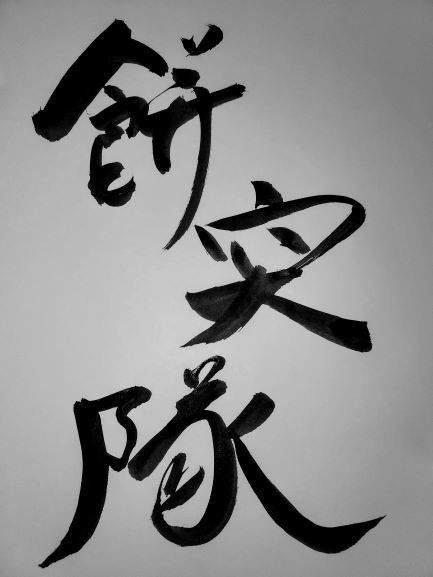 餅突隊